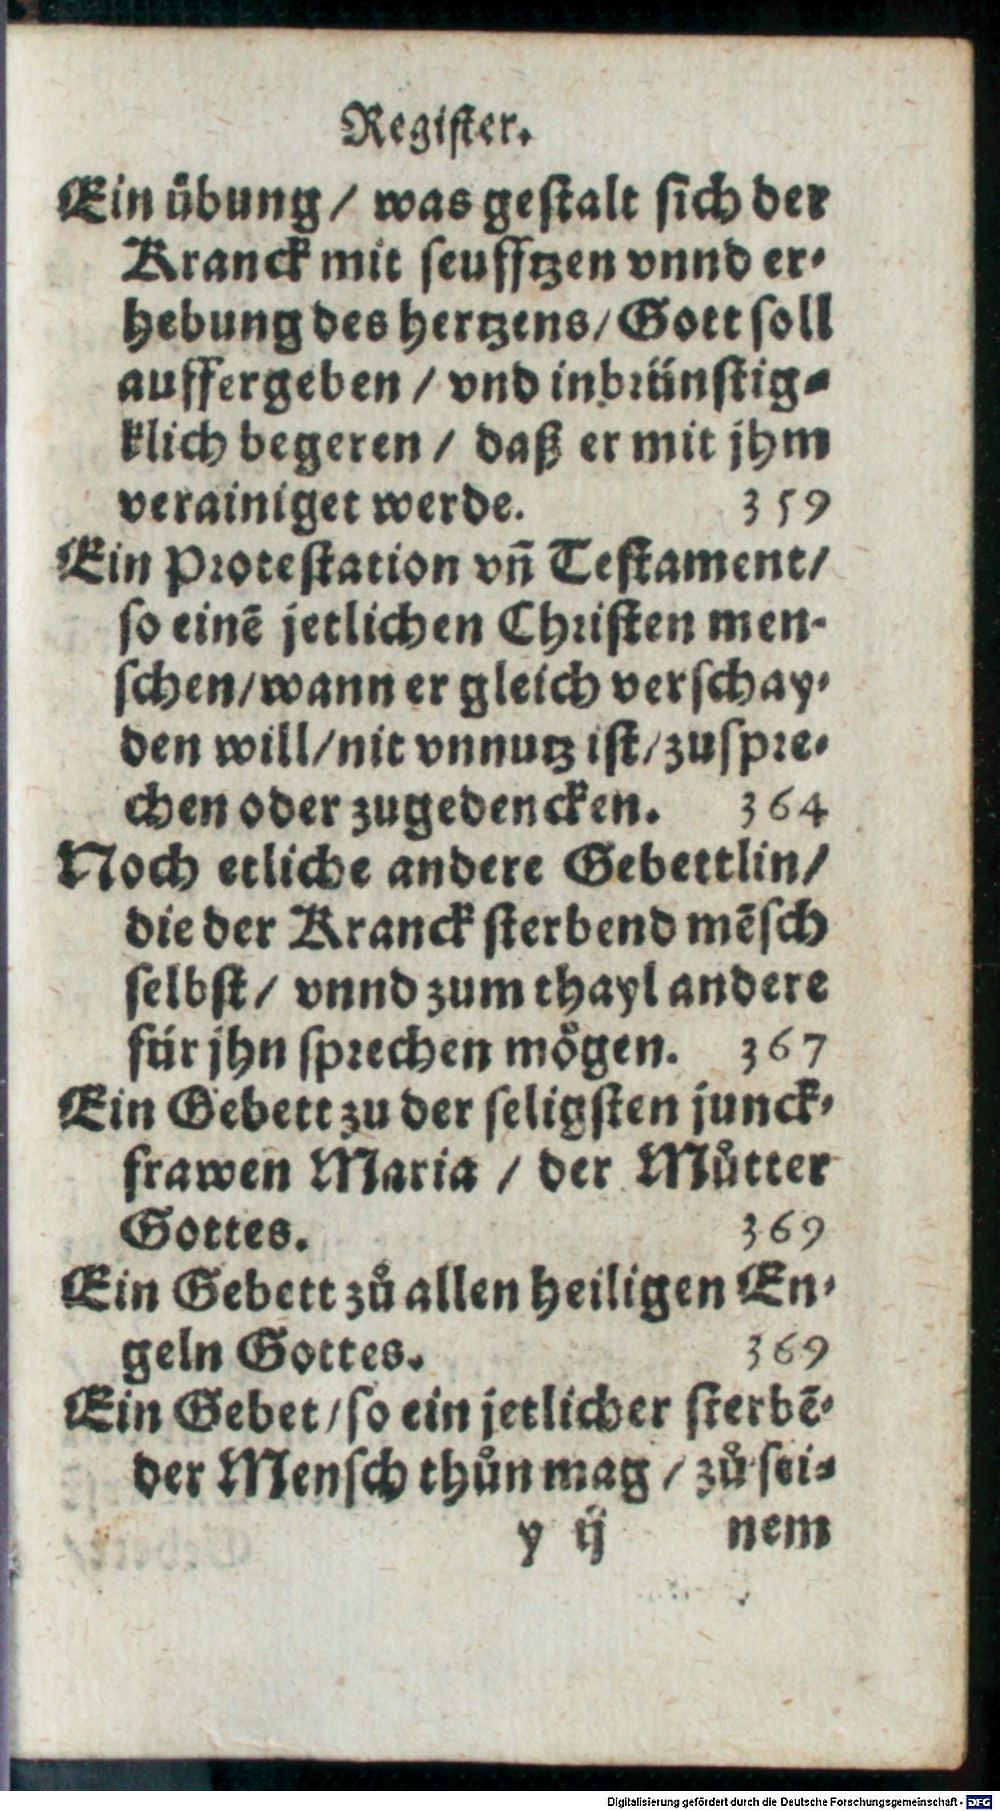 Register.
Ein übung / was gestalt sich der
Kranck mit seufftzen vnnd er-
hebung des hertzens / Gott soll
auffergeben / vnd inbrünstig-
klich begeren / daß er mit jhm
verainiget werde. 359
Ein Protestation vn̄ Testament /
so einē jetlichen Christen men-
schen / wann er gleich verschay-
den will / nit vnnutz ist / zuspre-
chen oder zugedencken. 364
Noch etliche andere Gebettlin /
die der Kranck sterbend mēsch
selbst / vnnd zum thayl andere
für jhn sprechen mögen. 367
Ein Gebett zu der seligsten junck-
frawen Maria / der Můtter
Gottes. 369
Ein Gebett zů allen heiligen En-
geln Gottes. 369
Ein Gebet / so ein jetlicher sterbē-
der Mensch thůn mag / zů sei-
y ij nem
Digitalisierung gefördert durch die Deutsche Forschungsgemeinschaft - DFG